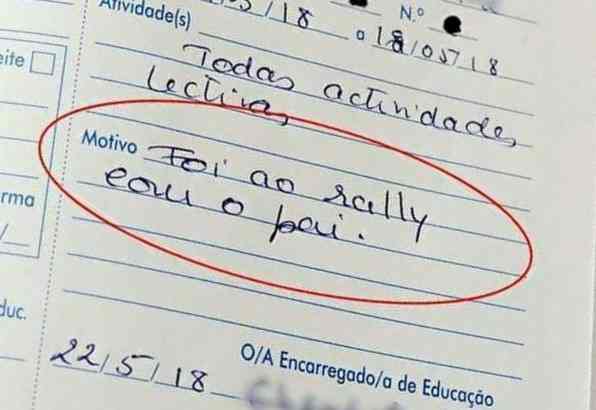 Atividade(s)
/18 a 18/05/18
N.º
Todas actividades
lectivas
eite
Motivo Foi ao rally
com o pai.
rma
duc.
22/5/18
O/A Encarregado/a de Educação